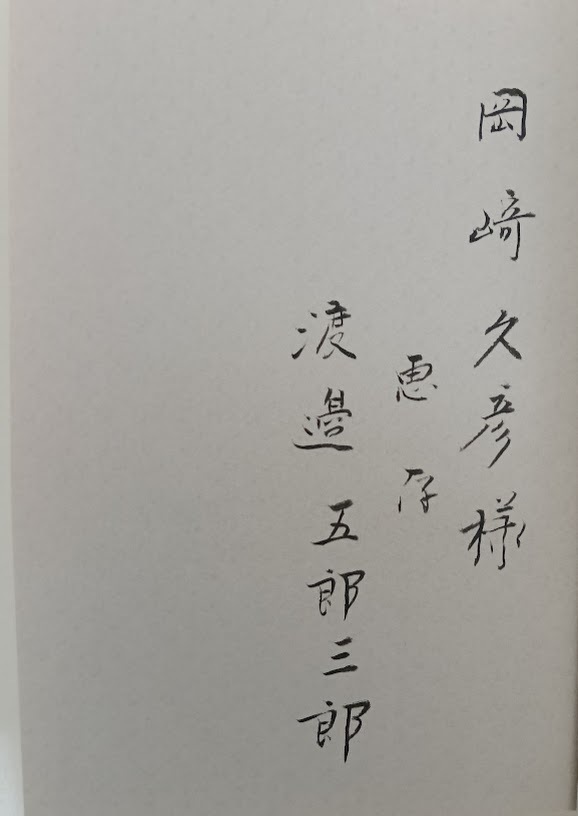 岡崎久彦様
恵存
渡邉五郎三郎